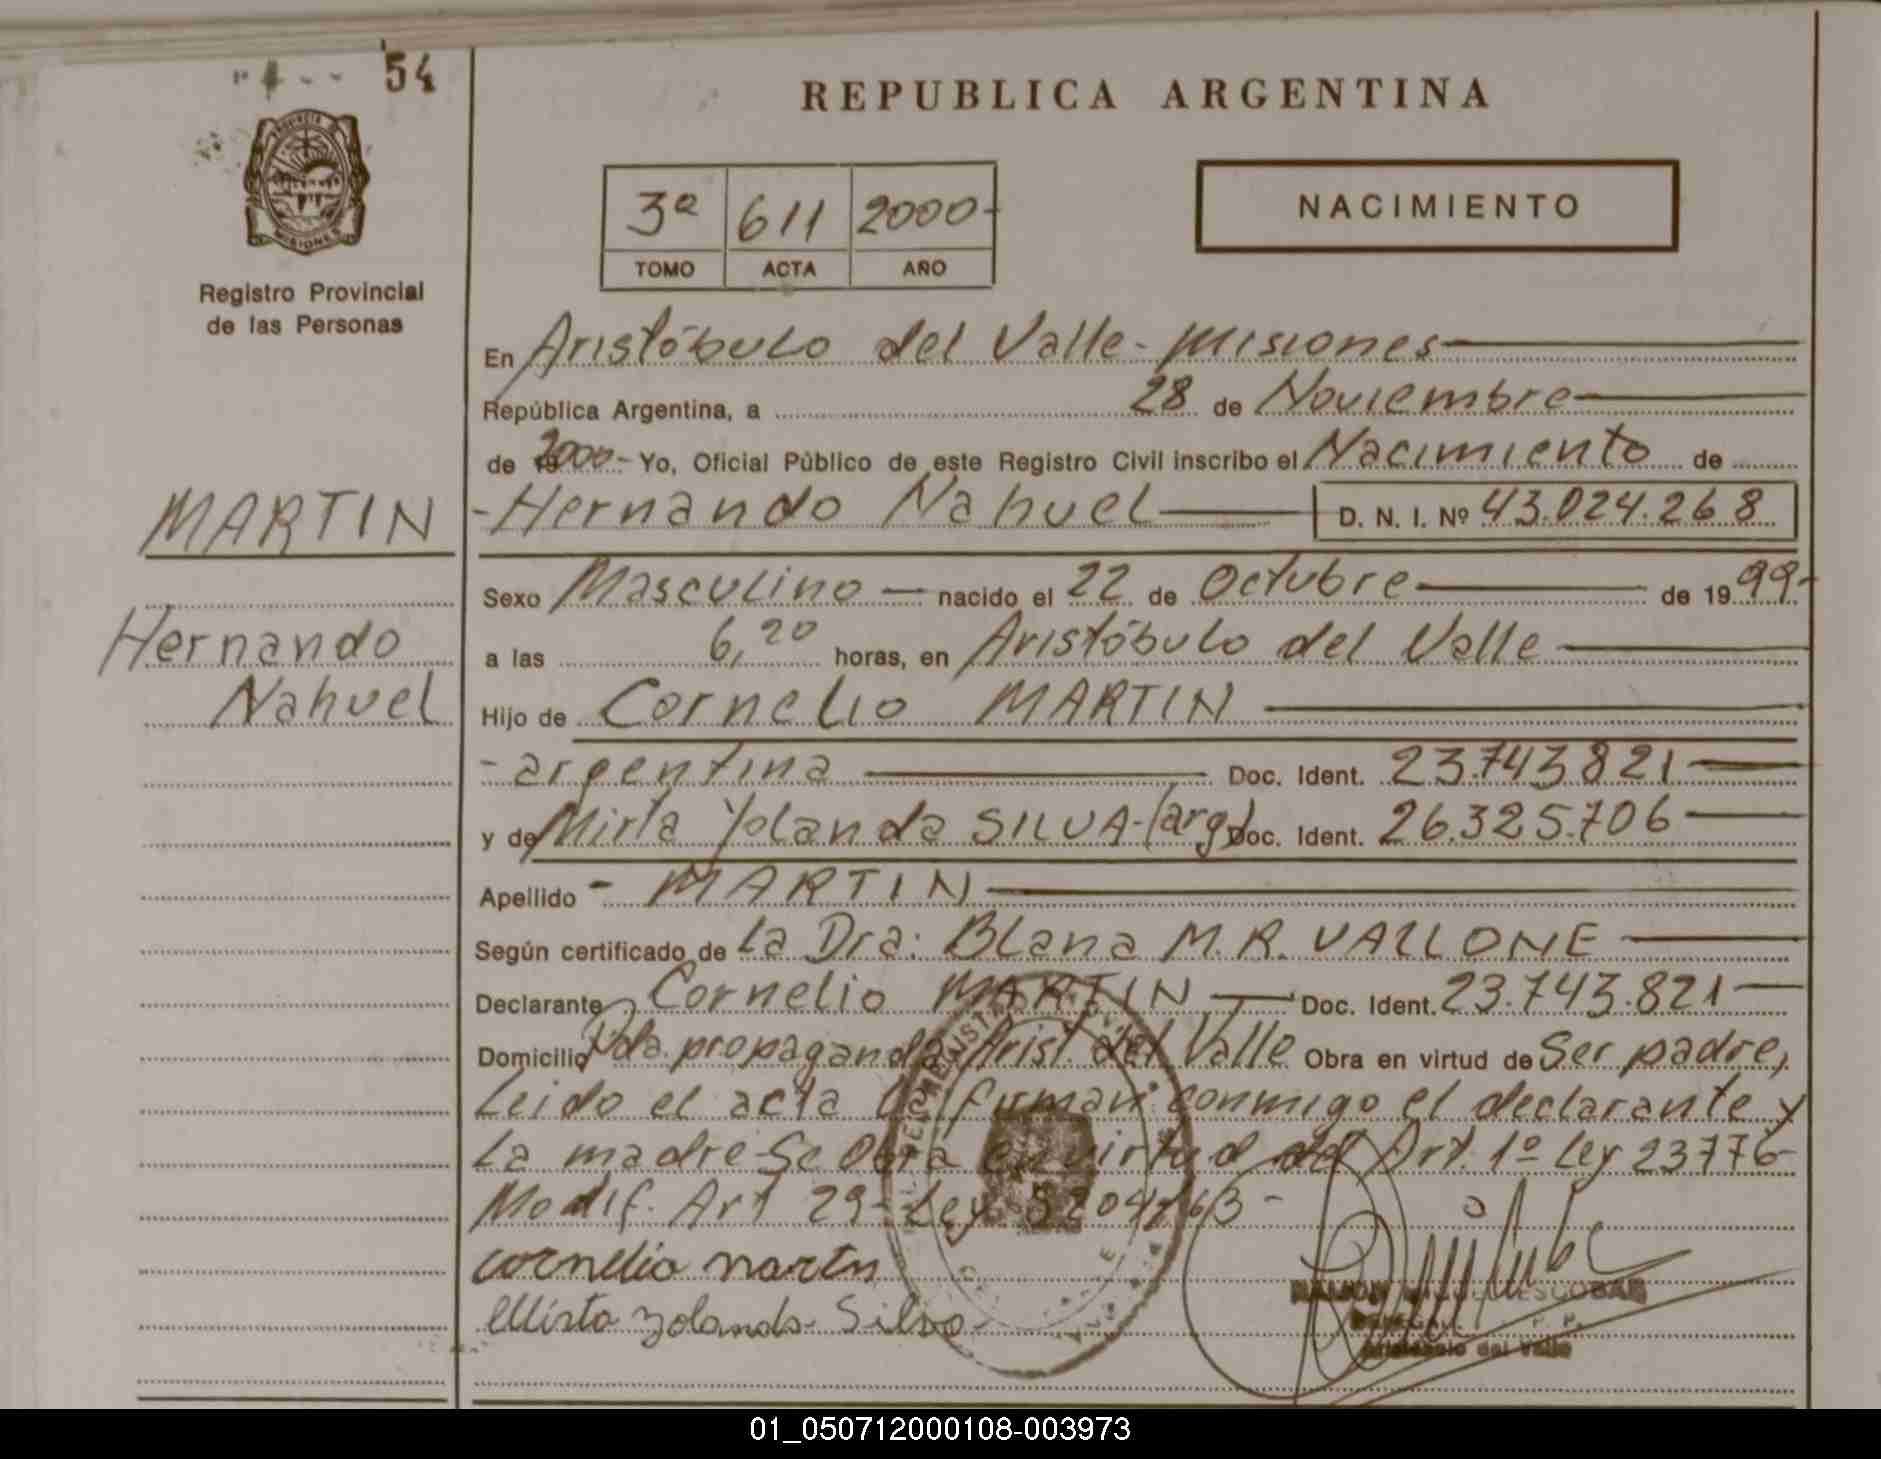 54
REPUBLICA ARGENTINA
PROVINCIA DE
MISIONES
Registro Provincial
de las Personas
3ª 611 2000-
TOMO ACTA AÑO
NACIMIENTO
En Aristóbulo del Valle - Misiones
República Argentina, a 28 de Noviembre
de 2000- Yo, Oficial Público de este Registro Civil inscribo el Nacimiento de
MARTIN
- Hernando Nahuel D. N. I. Nº 43.024.268
Sexo Masculino — nacido el 22 de Octubre de 1999-
Hernando
a las 6,20 horas, en Aristóbulo del Valle
Nahuel
Hijo de Cornelio MARTIN
- argentina Doc. Ident. 23.743.821
y de Mirta Yolanda SILVA-(arg) Doc. Ident. 26.325.706
Apellido - MARTIN
Según certificado de La Dra: Blana M. R. VALLONE
Declarante Cornelio MARTIN Doc. Ident. 23.743.821
Domicilio Pda. propaganda Arist. del Valle Obra en virtud de Ser padre,
Leido el acta la firman conmigo el declarante y
La madre-Se Obra en virtud del Art. 1º Ley 23776-
Modif. Art 29- Ley 8204/63-
cornelio martin
Mirta Yolanda Silva
RAMON MIGUEL ESCOBAR
Aristóbulo del Valle
01_050712000108-003973